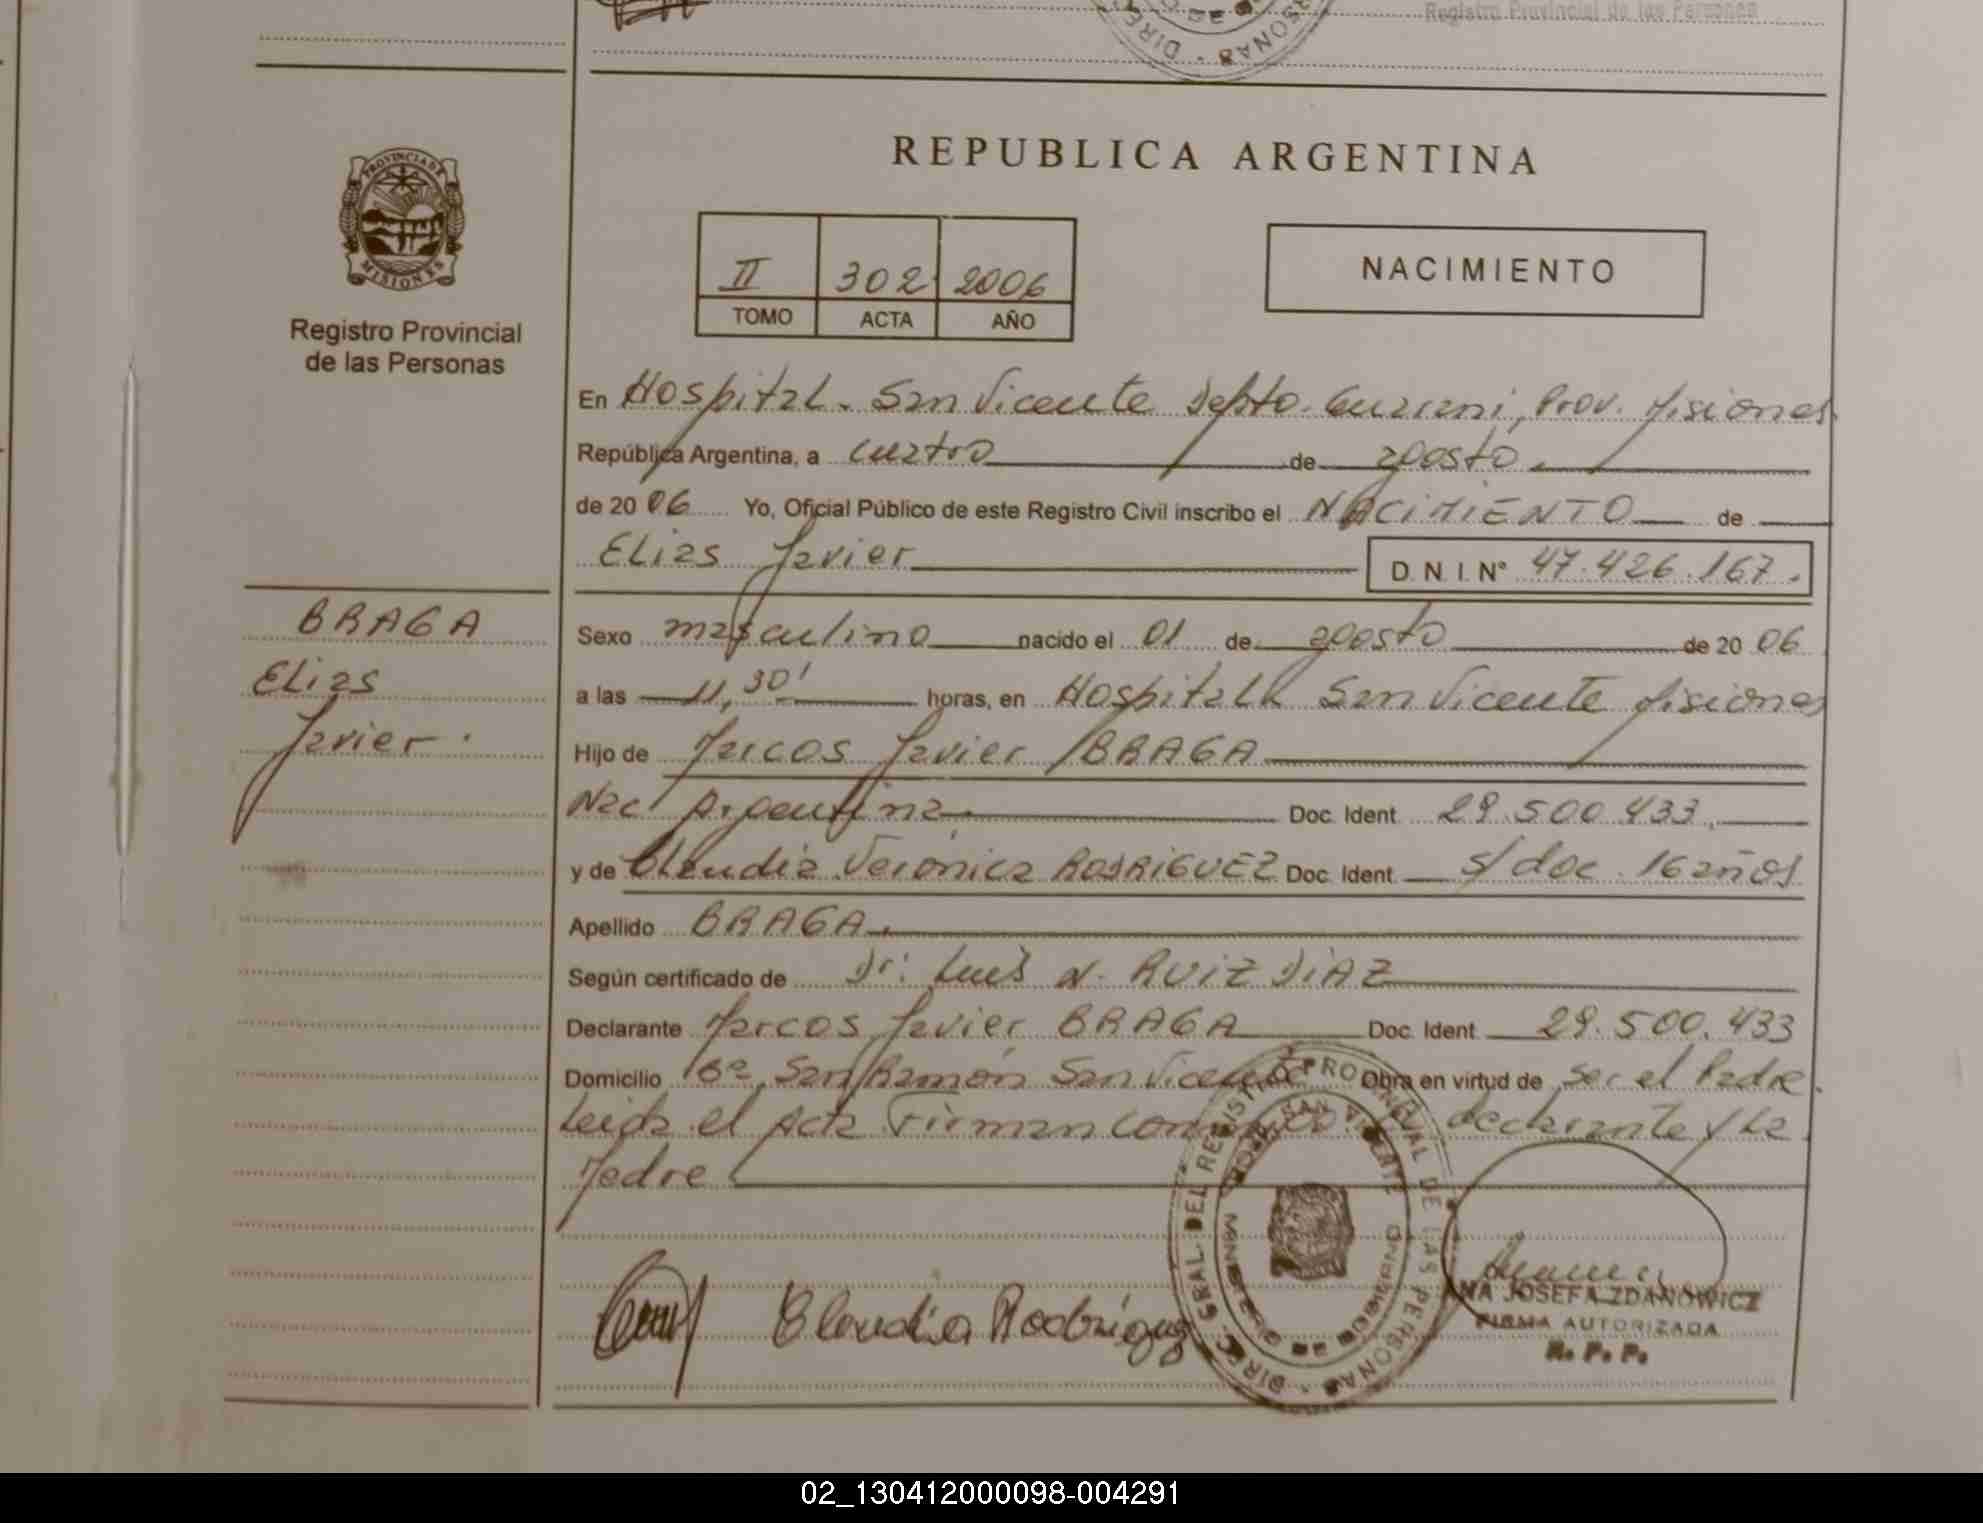 Registro Provincial de las Personas
REPUBLICA ARGENTINA
PROVINCIA DE
MISIONES
Registro Provincial
de las Personas
II 302 2006
TOMO ACTA AÑO
NACIMIENTO
En Hospital. San Vicente Depto. Guarani, Prov. Misiones
República Argentina, a cuatro de agosto.
de 20 06 Yo, Oficial Público de este Registro Civil inscribo el NACIMIENTO de
Elias Javier D.N.I. N° 47.426.167.
BRAGA
Elias
Javier.
Sexo masculino nacido el 01 de agosto de 20 06
a las 11,30' horas, en Hospital San Vicente Misiones
Hijo de Marcos Javier BRAGA
Nac. Argentina. Doc. Ident. 29.500.433.
y de Claudia Verónica RODRIGUEZ Doc. Ident. s/doc. 16 años
Apellido BRAGA.
Según certificado de Dr. Luis N. RUIZ DIAZ
Declarante Marcos Javier BRAGA Doc. Ident. 29.500.433
Domicilio Bº San Ramón San Vicente Obra en virtud de Ser el Padre.
Leida el Acta Firman declarante y la
Madre
Claudia Rodriguez
DIREC. GRAL. DEL REGISTRO PROVINCIAL DE LAS PERSONAS
SAN VICENTE
ANA JOSEFA ZDANOWICZ
FIRMA AUTORIZADA
R. P. P.
02_130412000098-004291